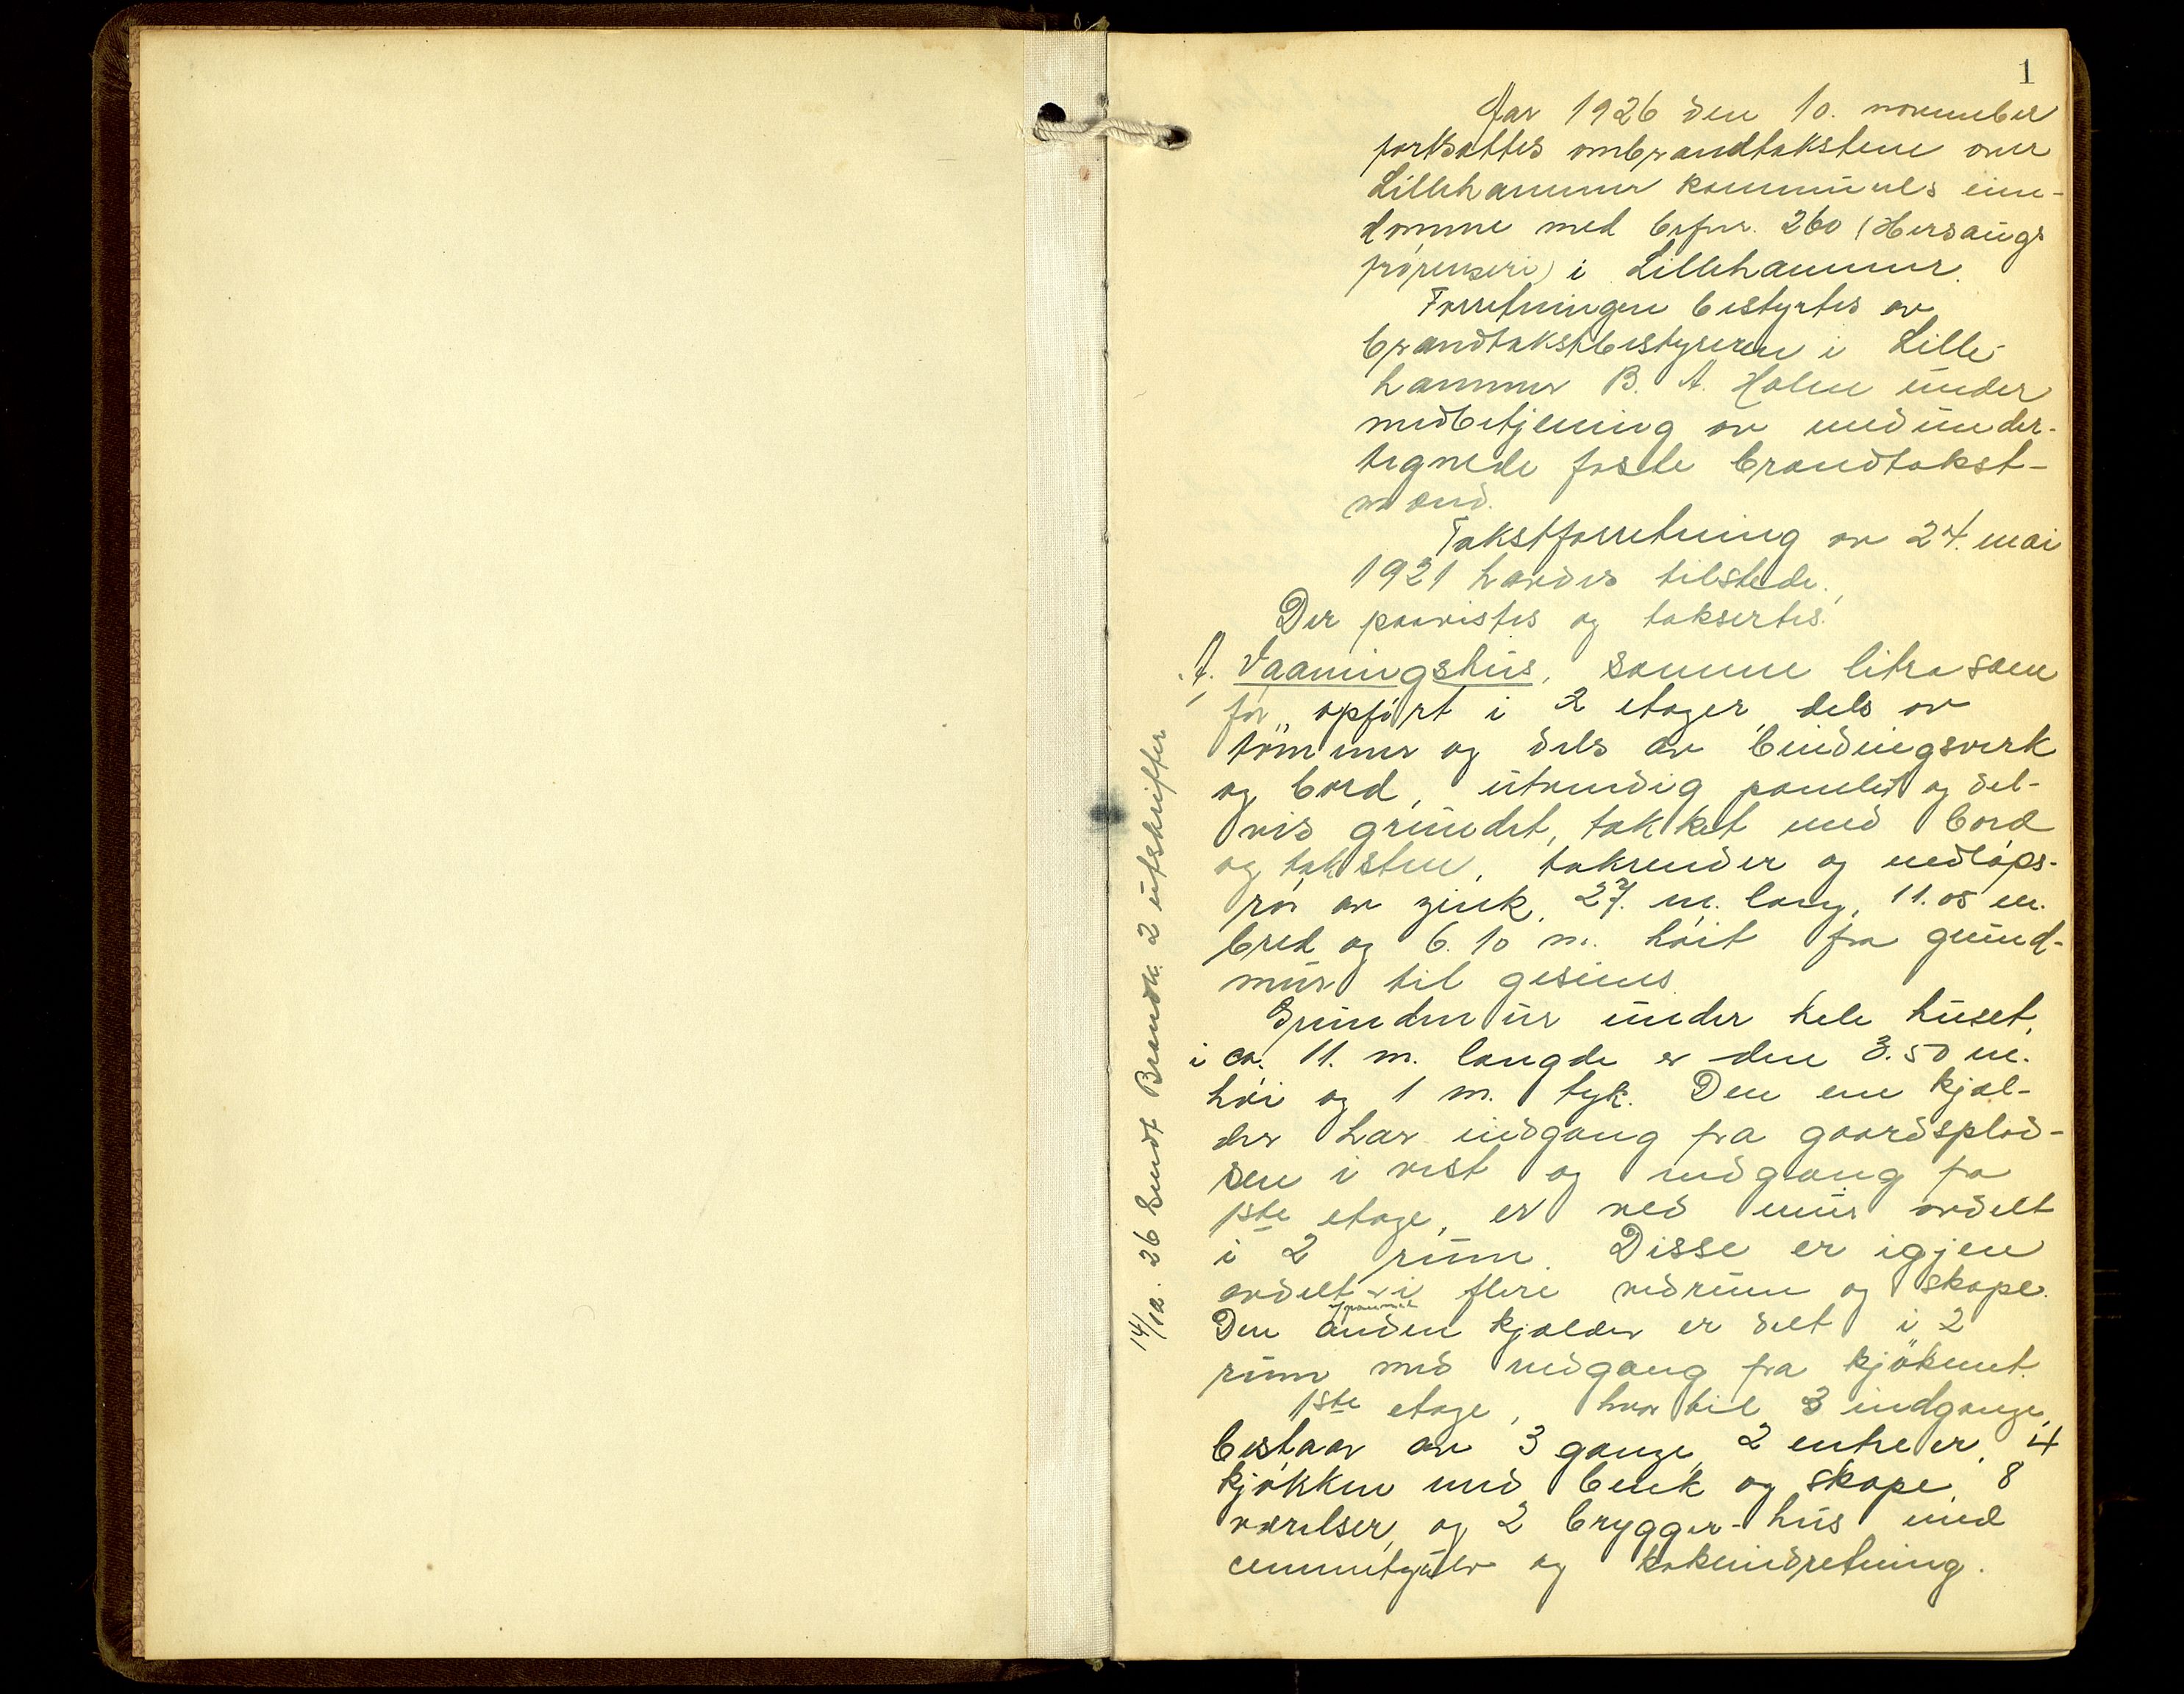 1
Aar 1926 den 10. november
fortsattes ombrandtakstene over
Lillehammer kommunes eien-
domme med brfnr. 260 (Hersaugs
frörenseri) i Lillehammer.
Forretningen bestyrtes av
brandtakstbestyreren i Lille-
hammer B. A. Holm under
medbetjening av medunder-
tegnede faste brandtakst-
mænd.
Takstforretning av 24. mai
1921 havdes tilstede.
Der paavistes og taksertes:
A. Vaaningshus, samme litra som
før, opført i 2 etager, dels av
tømmer og dels av bindingsverk
og bord, utvendig panelt og del-
vis grundet, takket med bord
og taksten, takrender og nedløps-
rør av zink, 27. m. lang, 11.05 m.
bred og 6.10 m. høit fra grund-
mur til gesims.
Grundmur under hele huset,
i ca. 11. m. længde er den 3.50 m.
høi og 1 m. tyk. Den ene kjæl-
der har indgang fra gaardsplad-
sen i vest og nedgang fra
1ste etage, er ved mur avdelt
i 2 rum. Disse er igjen
avdelt i flere vedrum og skape.
Den anden kjælder er delt i 2
rum med nedgang fra kjøkenet.
1ste etage, hvortil 3 indgange,
bestaar av 3 gange, 2 entreer, 4
kjøkken med benk og skape, 8
værelser, og 2 brygger-hus med
cementgulv og kokeindretning.
14/12. 26 Sendt Brandk. 2 utskrifter